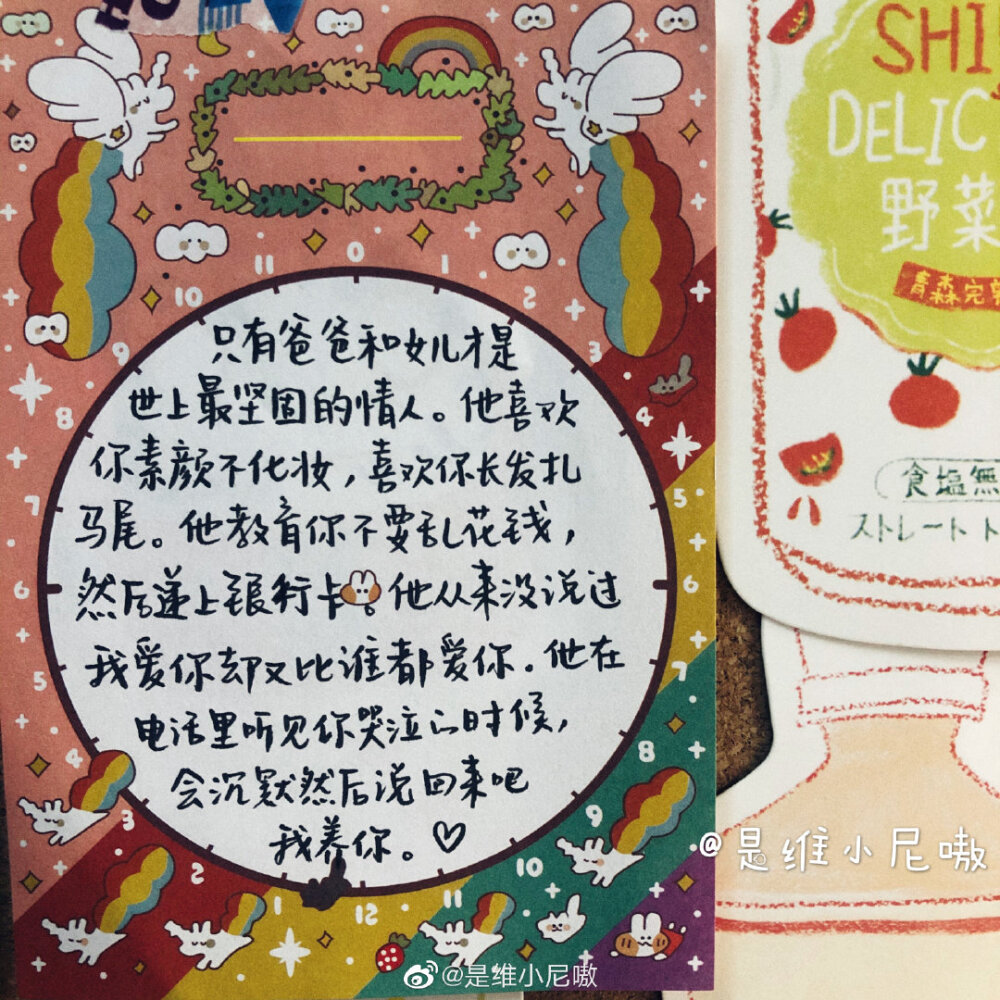 只有爸爸和女儿才是
世上最坚固的情人。他喜欢
你素颜不化妆，喜欢你长发扎
马尾。他教育你不要乱花钱，
然后递上银行卡。他从来没说过
我爱你却又比谁都爱你。他在
电话里听见你哭泣的时候，
会沉默然后说回来吧
我养你。♡
11 0 1
10 2
9 3
8 4
7 5
6 6
5 7
4 8
3 9
10
1 12 11
SHI
DELIC
野菜
青森完
食塩無
ストレート ト
@是维小尼嗷
@是维小尼嗷